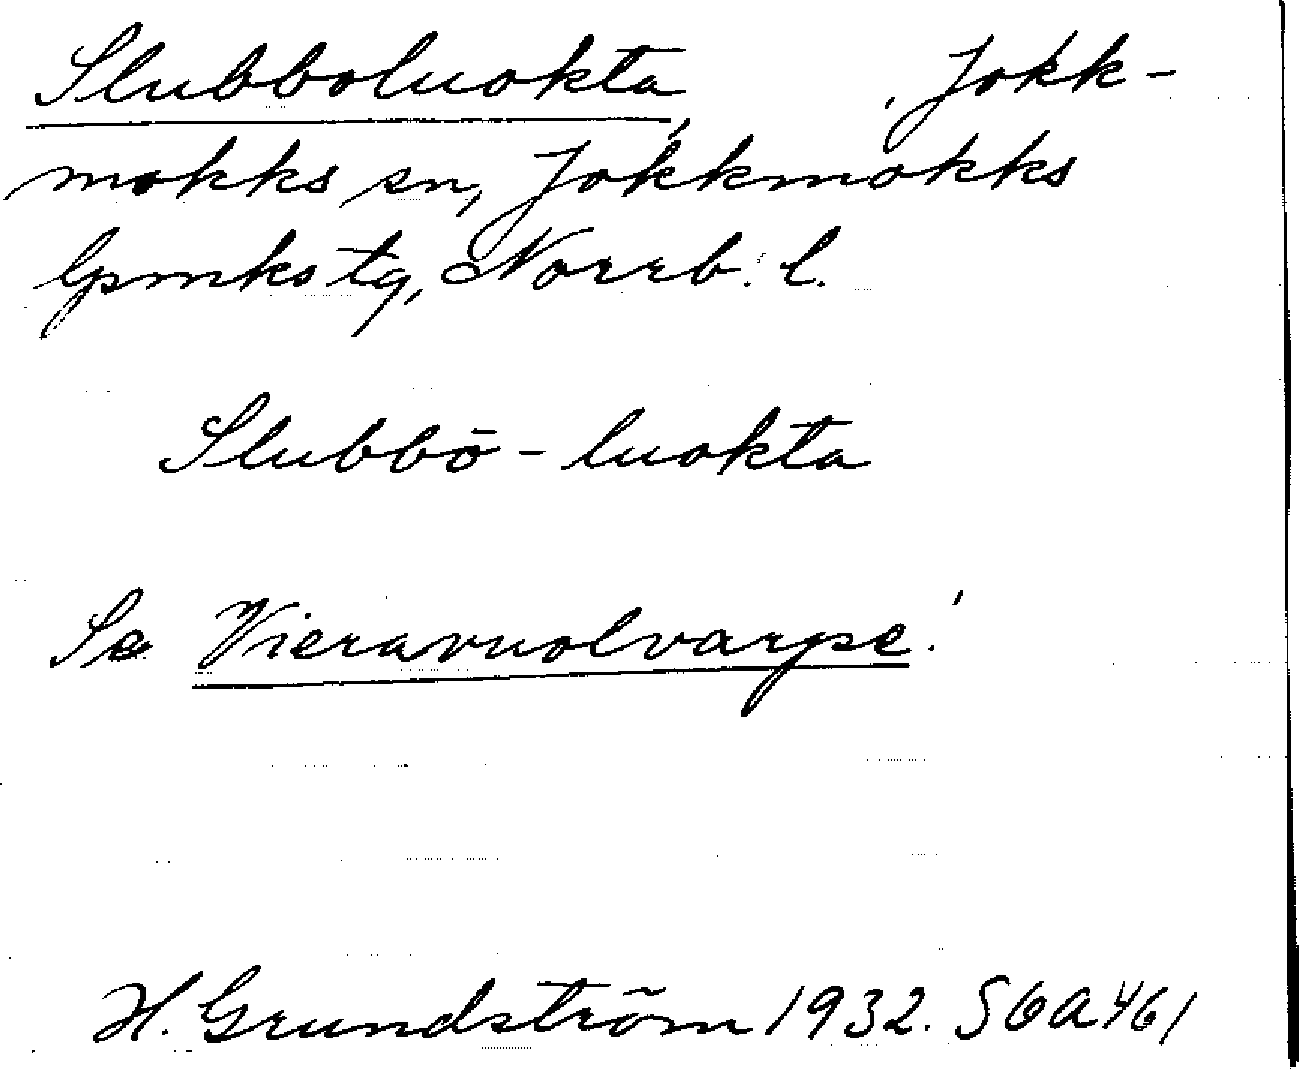 Slubboluokta, Jokk-
mokks sn, Jokkmokks
lpmks tg, Norrb. l.
Slubbō-luokta
Se Vieravuolvarpe!
H. Grundström 1932. SGA461